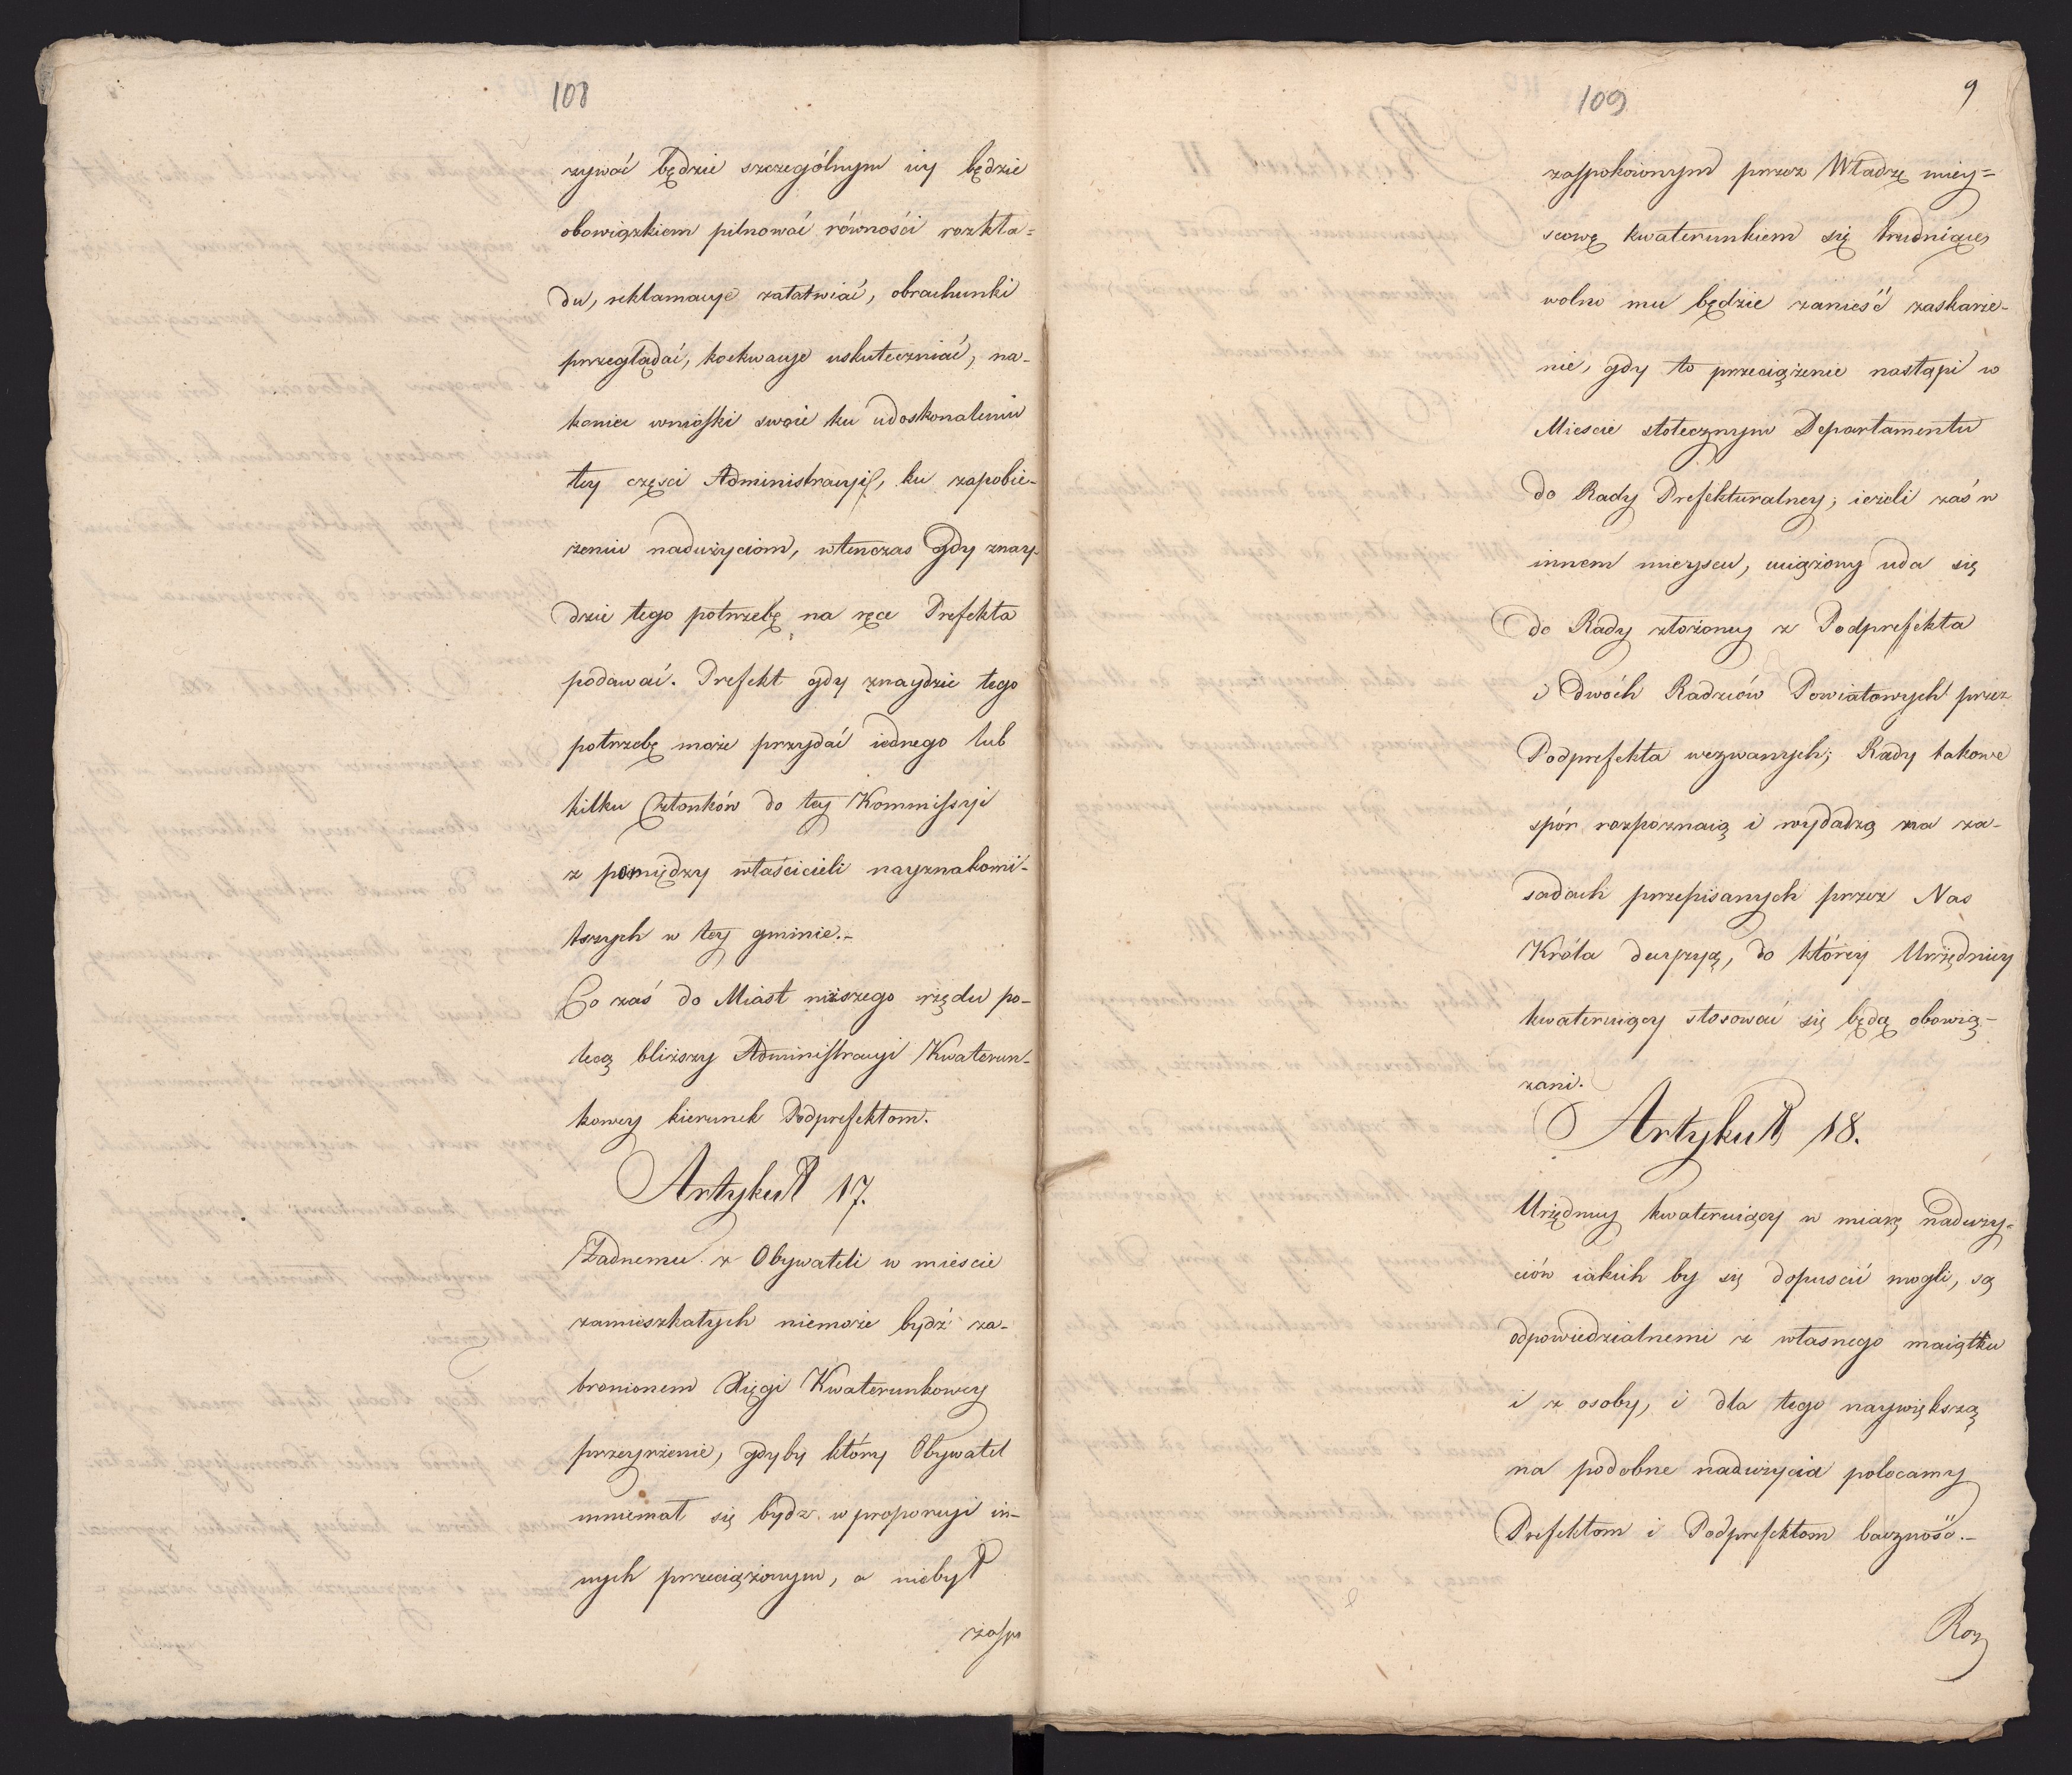 108
zywać będzie szczególnym iey będzie
obowiązkiem pilnować równości rozkła=
du, reklamacye załatwiać, obrachunki
przeglądać, koekwacye uskuteczniać, na-
koniec wnioski swoie ku udoskonaleniu
tey części Administracyi, ku zapobie-
żeniu nadużyciom, wtenczas gdy znay-
dzie tego potrzebę na ręce Prefekta
podawać. Prefekt gdy znaydzie tego
potrzebę może przydać iednego lub
kilku Członków do tey Kommissyi
z pomiędzy właścicieli nayznakomi-
tszych w tey gminie.-
Co zaś do Miast niższego rzędu po-
lecą bliższy Administracyi Kwaterun-
kowey kierunek Podprefektom.
Artykuł 17.
Żadnemu z Obywateli w mieście
zamieszkałych niemoże bydź za-
bronionem Xięgi Kwaterunkowey
przeyrzenie, gdyby który Obywatel
mniemał się bydź w proporcyi in-
nych przeciążonym, a niebył
zaspo
109
9
zaspokoionym przez Władzę miey=
scową kwaterunkiem się trudniącą
wolno mu będzie zanieść zaskarże-
nie, gdy to przeciążenie nastąpi w
Mieście stołecznym Departamentu
do Rady Prefekturalney; ieżeli zaś w
innem mieyscu, uciążony uda się
do Rady złożoney z Podprefekta
i dwóch Radzców Powiatowych przez
Podprefekta wezwanych; Rady takowe
spór rozpoznaią i wydadzą na za-
sadach przepisanych przez Nas
Króla decyzyą, do którey Urzędnicy
kwateruiący stosować się będą obowią-
zani.
Artykuł 18.
Urzędnicy kwateruiący w miarę naduży-
ciów iakich by się dopuścić mogli, są
odpowiedzialnemi z własnego maiątku
i z osoby, i dla tego naywiększą
na podobne nadużycia polecamy
Prefektom i Podprefektom baczność.-
Roz